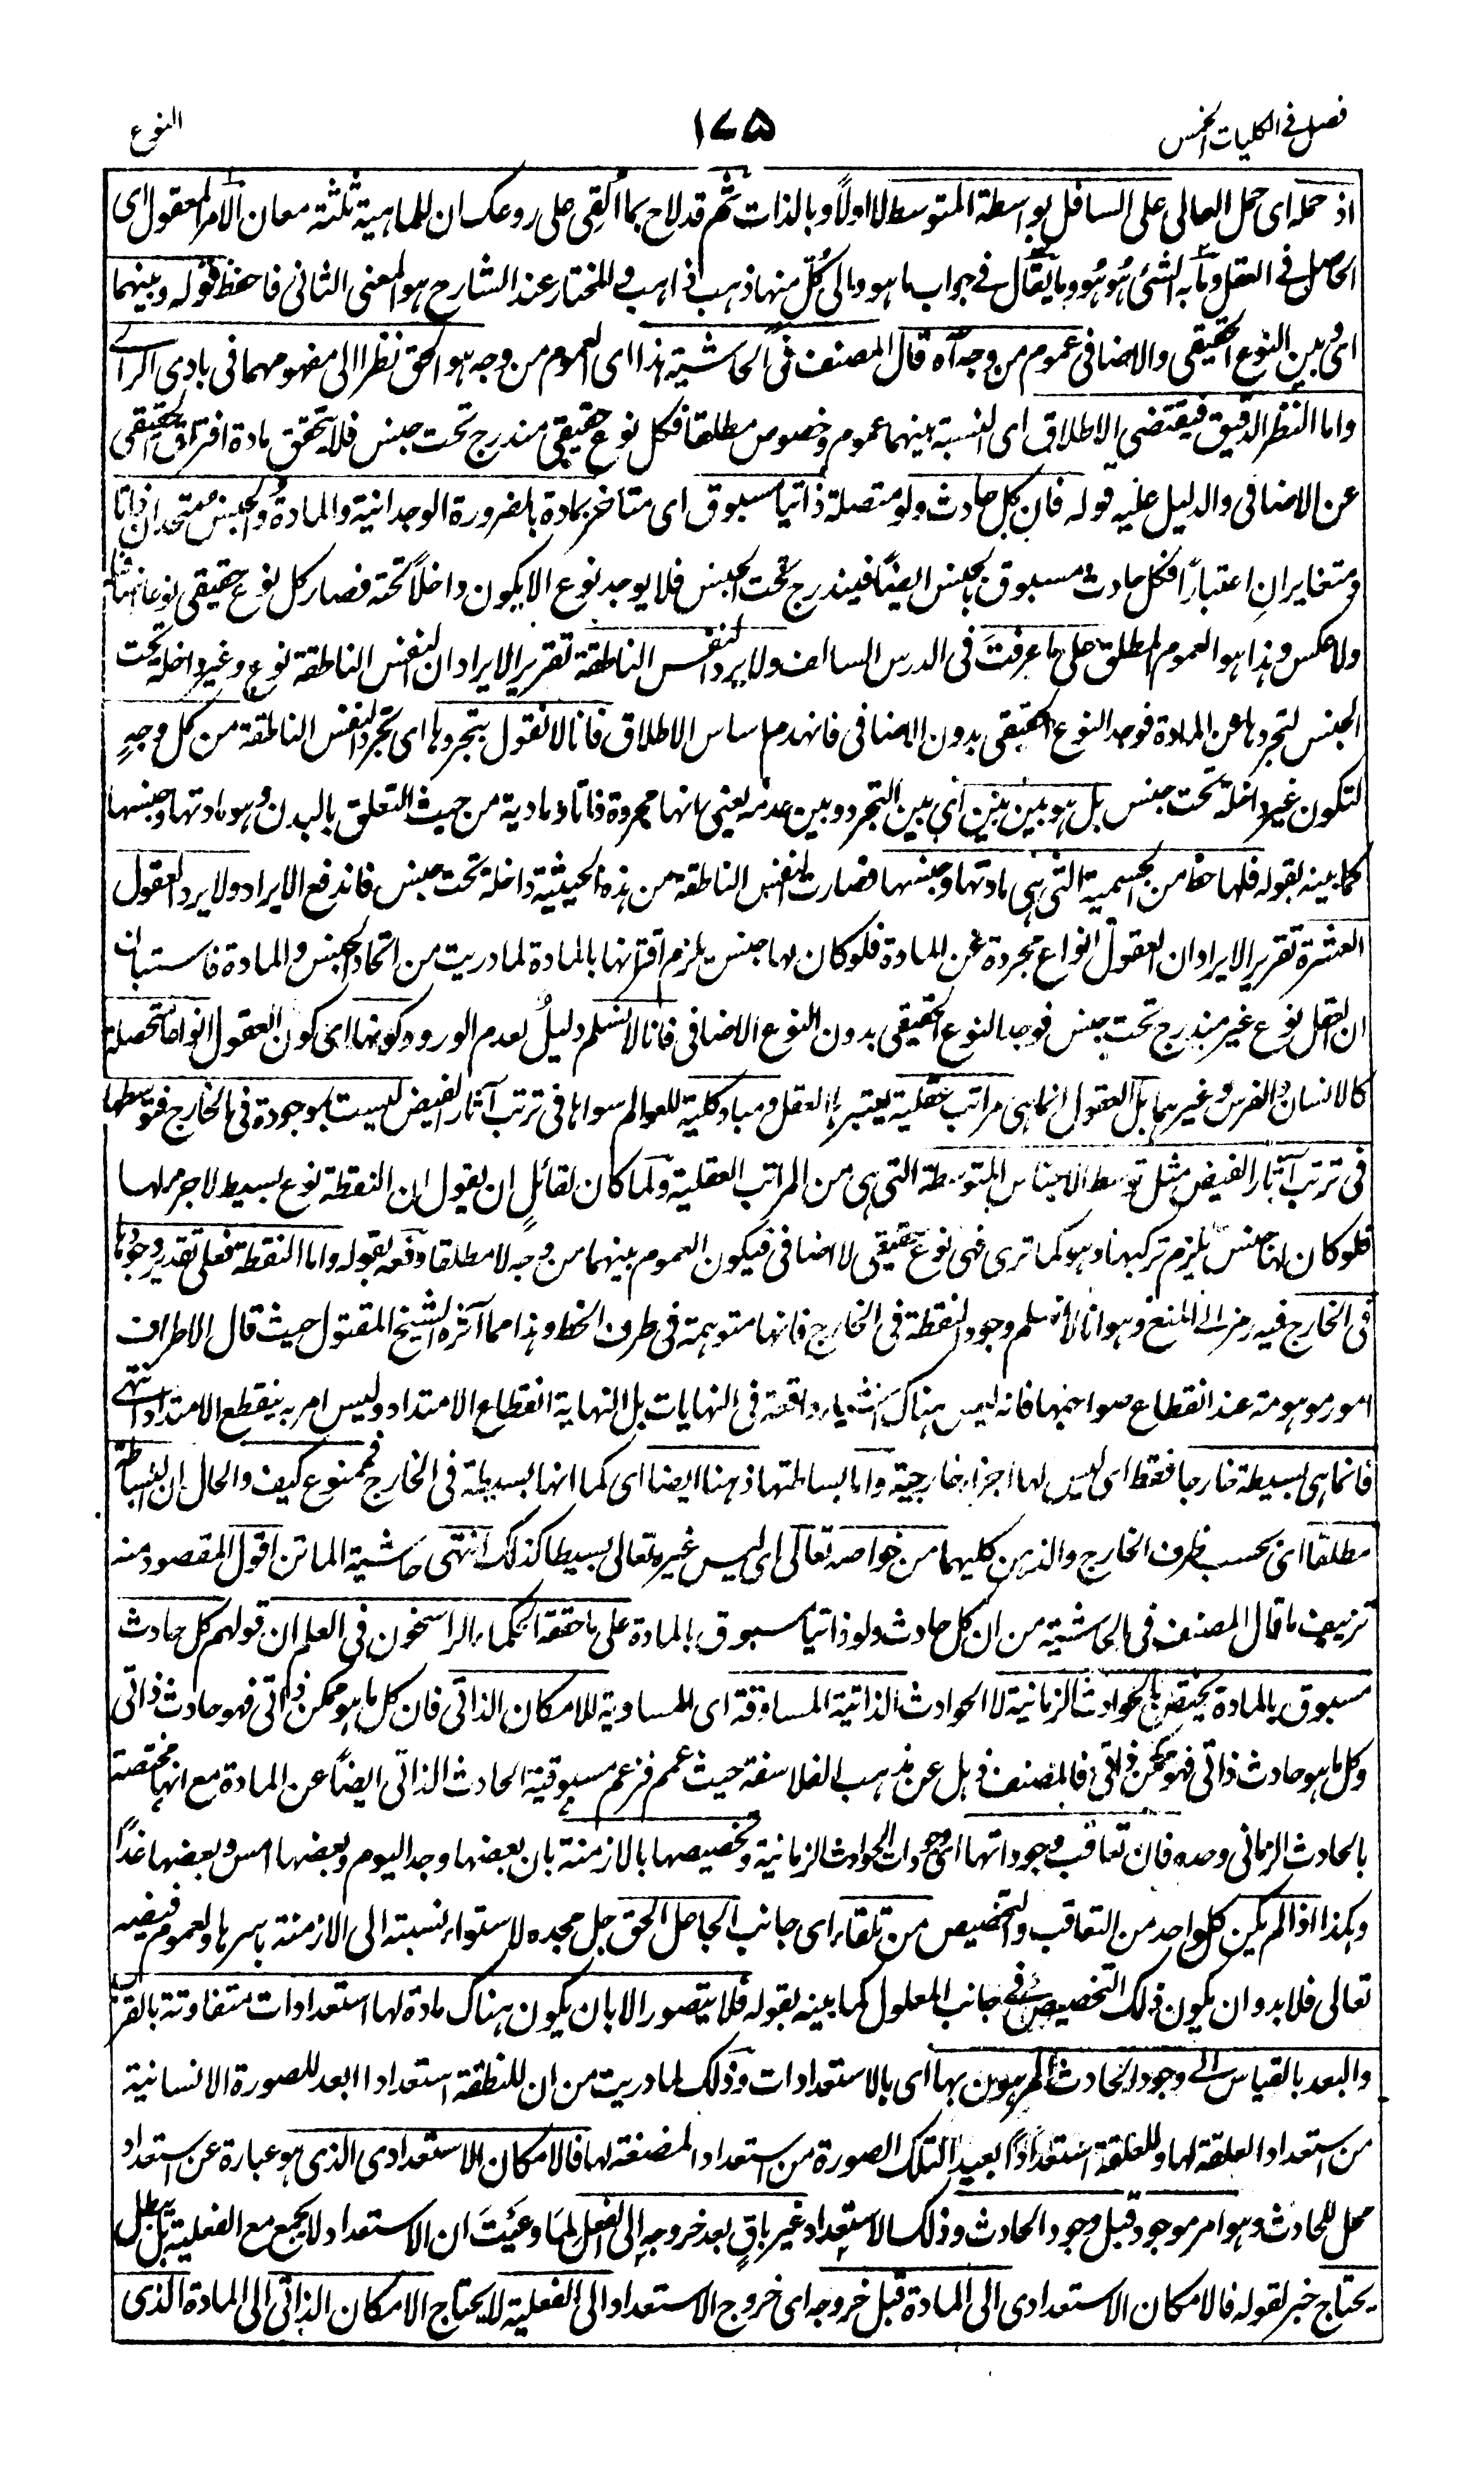 فصل فی الکلیات الخمس
١٧٥
النوع
اذ حمله ای حمل العالی علی السافل بواسطة المتوسط لا اولاً وبالذات ثم قد لاح بما اُلقِی علی روعک ان للماهیة ثلثة معان الامر المعقول ای
الحاصل فی العقل وما به الشئ هُو هُو وما یقال فی جواب ما هو والی کُلّ منها ذهب ذاهب والمختار عند الشارح هو المعنی الثانی فاحفظ قوله وبینهما
ای بین النوع الحقیقی والاضافی عموم من وجه آه قال المصنف فی الحاشیة هذا ای العموم من وجه هو الحق نظرا الی مفهومهما فی بادی الرائ
واما النظر الدقیق فیقتضی الاطلاق ای النسبة بینهما عموم وخصوص مطلقا فکل نوع حقیقی مندرج تحت جنس فلا یتحقق مادة افتراق الحقیقی
عن الاضافی والدلیل علیه قوله فان کل حادث ولو متصلة ذاتیا مسبوق ای متاخر بمادة بالضرورة الوجدانیة والمادة والجنس متحدان ذاتا
ومتغایران اعتباراً فکل حادث مسبوق بالجنس ایضاً فیندرج تحت الجنس فلا یوجد نوع الا یکون داخلاً تحته فصار کل نوع حقیقی نوعا اضافیا
ولا عکس وهذا هو العموم المطلق علی ما عرفتَ فی الدرس السالف ولا یرد النفس الناطقة تقریر الایراد ان النفس الناطقة نوع وغیر داخلة تحت
الجنس لتجردها عن المادة فوجد النوع الحقیقی بدون الاضافی فانهدم اساس الاطلاق فانا لا نقول بتجردها ای تجرد النفس الناطقة من کل وجهٍ
لتکون غیر داخلة تحت جنس بل هو بین بین ای بین التجرد وبین عدمه یعنی انها مجردة ذاتا ومادیة من حیث التعلق بالبدن وهو مادتها وجنسها
کما بینه بقوله فلها حظ من الجسمیة التی هی مادتها وجنسها فصارت النفس الناطقة من هذه الحیثیة داخلة تحت جنس فاندفع الایراد ولا یرد العقول
العشرة تقریر الایراد ان العقول انواع مجردة عن المادة فلو کان لها جنس یلزم اقترانها بالمادة لما دریت من اتحاد الجنس والمادة فاستبان
ان العقل نوع غیر مندرج تحت جنس فوجد النوع الحقیقی بدون النوع الاضافی فانا لا نسلم دلیلُ لعدم الورود کونها ای کون العقول انواعا متحصلة
کالانسان والفرس وغیرهما بل العقول انما هی مراتب عقلیة یعتبرها العقل ومباد کلیة للعوالم سواها فی ترتب آثار الفیض لیست بموجودة فی الخارج فتوسطها
فی ترتب آثار الفیض مثل توسط الاجناس المتوسطة التی هی من المراتب العقلیة ولما کان لقائلٍ ان یقول ان النقطة نوع بسیط لا جزء لها
فلو کان لها جنس یلزم ترکبها وهو کما تری فهی نوع حقیقی لا اضافی فیکون العموم بینهما من وجه لا مطلقا دفعه بقوله واما النقطة فعلی تقدیر وجودها
فی الخارج فیه رمز الی المنع وهو انا لا نسلم وجود النقطة فی الخارج فانها متوهمة فی طرف الخط وهذا مما آثره الشیخ المقتول حیث قال الاطراف
امور موهومة عند انقطاع صواحبها فانه لیس هناک اشیاء واقعة فی النهایات بل النهایة انقطاع الامتداد ولیس امر به ینقطع الامتداد انتهی
فانما هی بسیطة خارجا فقط ای لیس لها اجزاء خارجیة واما بساطتها ذهنا ایضا ای کما انها بسیطة فی الخارج فممنوع کیف والحال ان البساطة
مطلقا ای بحسب ظرف الخارج والذهن کلیهما من خواصه تعالی ای لیس غیره تعالی بسیطا کذلک انتهی حاشیة الماتن اقول المقصود منه
تزییف ما قال المصنف فی الحاشیة من ان کل حادث ولو ذاتیا مسبوق بالمادة علی ما حققه الحکماء الراسخون فی العلم ان قولهم کل حادث
مسبوق بالمادة یختص بالحوادث الزمانیة لا الحوادث الذاتیة المساوقة ای المساویة للامکان الذاتی فان کل ما هو ممکن ذاتی فهو حادث ذاتی
وکل ما هو حادث ذاتی فهو ممکن ذاتی فالمصنف ذهل عن مذهب الفلاسفة حیث عمم فزعم مسبوقیة الحادث الذاتی ایضاً عن المادة مع انها مختصة
بالحادث الزمانی وحده فان تعاقب وجوداتها ای وجودات الحوادث الزمانیة وتخصیصها بالازمنة بان بعضها وجد الیوم وبعضها امس وبعضها غداً
وهکذا اذا لم یکن کل واحد من التعاقب والتخصیص من تلقاء ای جانب الجاعل الحق جل مجده لاستواء نسبته الی الازمنة باسرها ولعموم فیضه
تعالی فلابد وان یکون ذلک التخصیص فی جانب المعلول کما بینه بقوله فلا یتصور الا بان یکون هناک مادة لها استعدادات متفاوتة بالقرب
والبعد بالقیاس الی وجود الحادث المرهون بها ای بالاستعدادات وذلک لما دریت من ان للنطفة استعدادا ابعد للصورة الانسانیة
من استعداد العلقة لها وللعلقة استعداداً بعیدا لتلک الصورة من استعداد المضغة لها فالامکان الاستعدادی الذی هو عبارة عن استعداد
محل للحادث وهو امر موجود قبل وجود الحادث وذلک الاستعداد غیر باقٍ بعد خروجه الی الفعل لما وعَیتَ ان الاستعداد لا یجمع مع الفعلیة بل یبطل
یحتاج خبر لقوله فالامکان الاستعدادی الی المادة قبل خروجه ای خروج الاستعداد الی الفعلیة لا یحتاج الامکان الذاتی الی المادة الذی